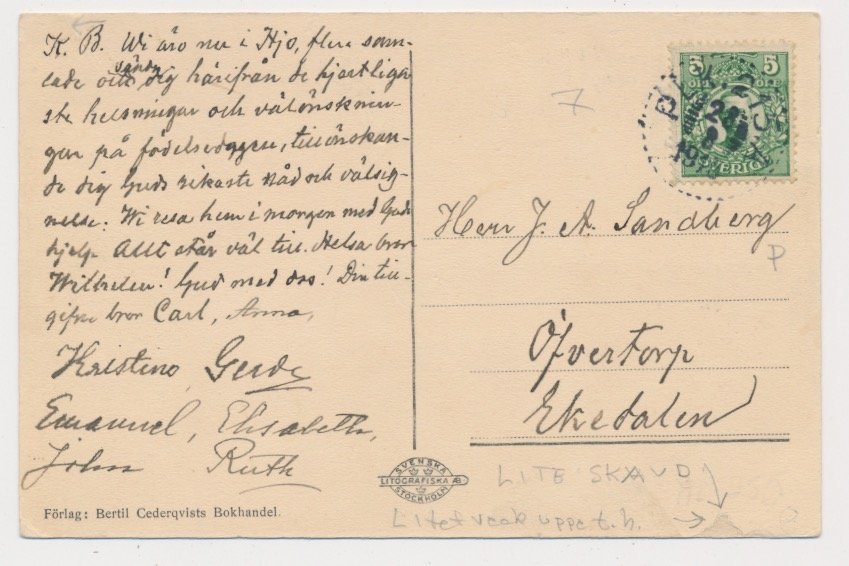 K. B. Wi äro nu i Hjo, flera sam-
lade och sända dig härifrån de hjertliga
ste helsningar och välönsknin-
gar på födelsedagen, tillönskan-
de dig Guds rikaste nåd och välsig-
nelse. Wi resa hem i morgon med Guds
hjelp. Allt står väl till. Helsa bror
Wilhelm! Gud med oss! Din till-
gifne bror Carl, Anna,
Kristina, Gerda
Emanuel, Elisabeth,
John Ruth
Förlag: Bertil Cederqvists Bokhandel.
SVENSKA
LITOGRAFISKA AB
STOCKHOLM
7
5 5
SVERIGE
Herr J. A. Sandberg
P
Öfvertorp
Ekedalen
LITE SKAVD
Litet veck uppe t.h.